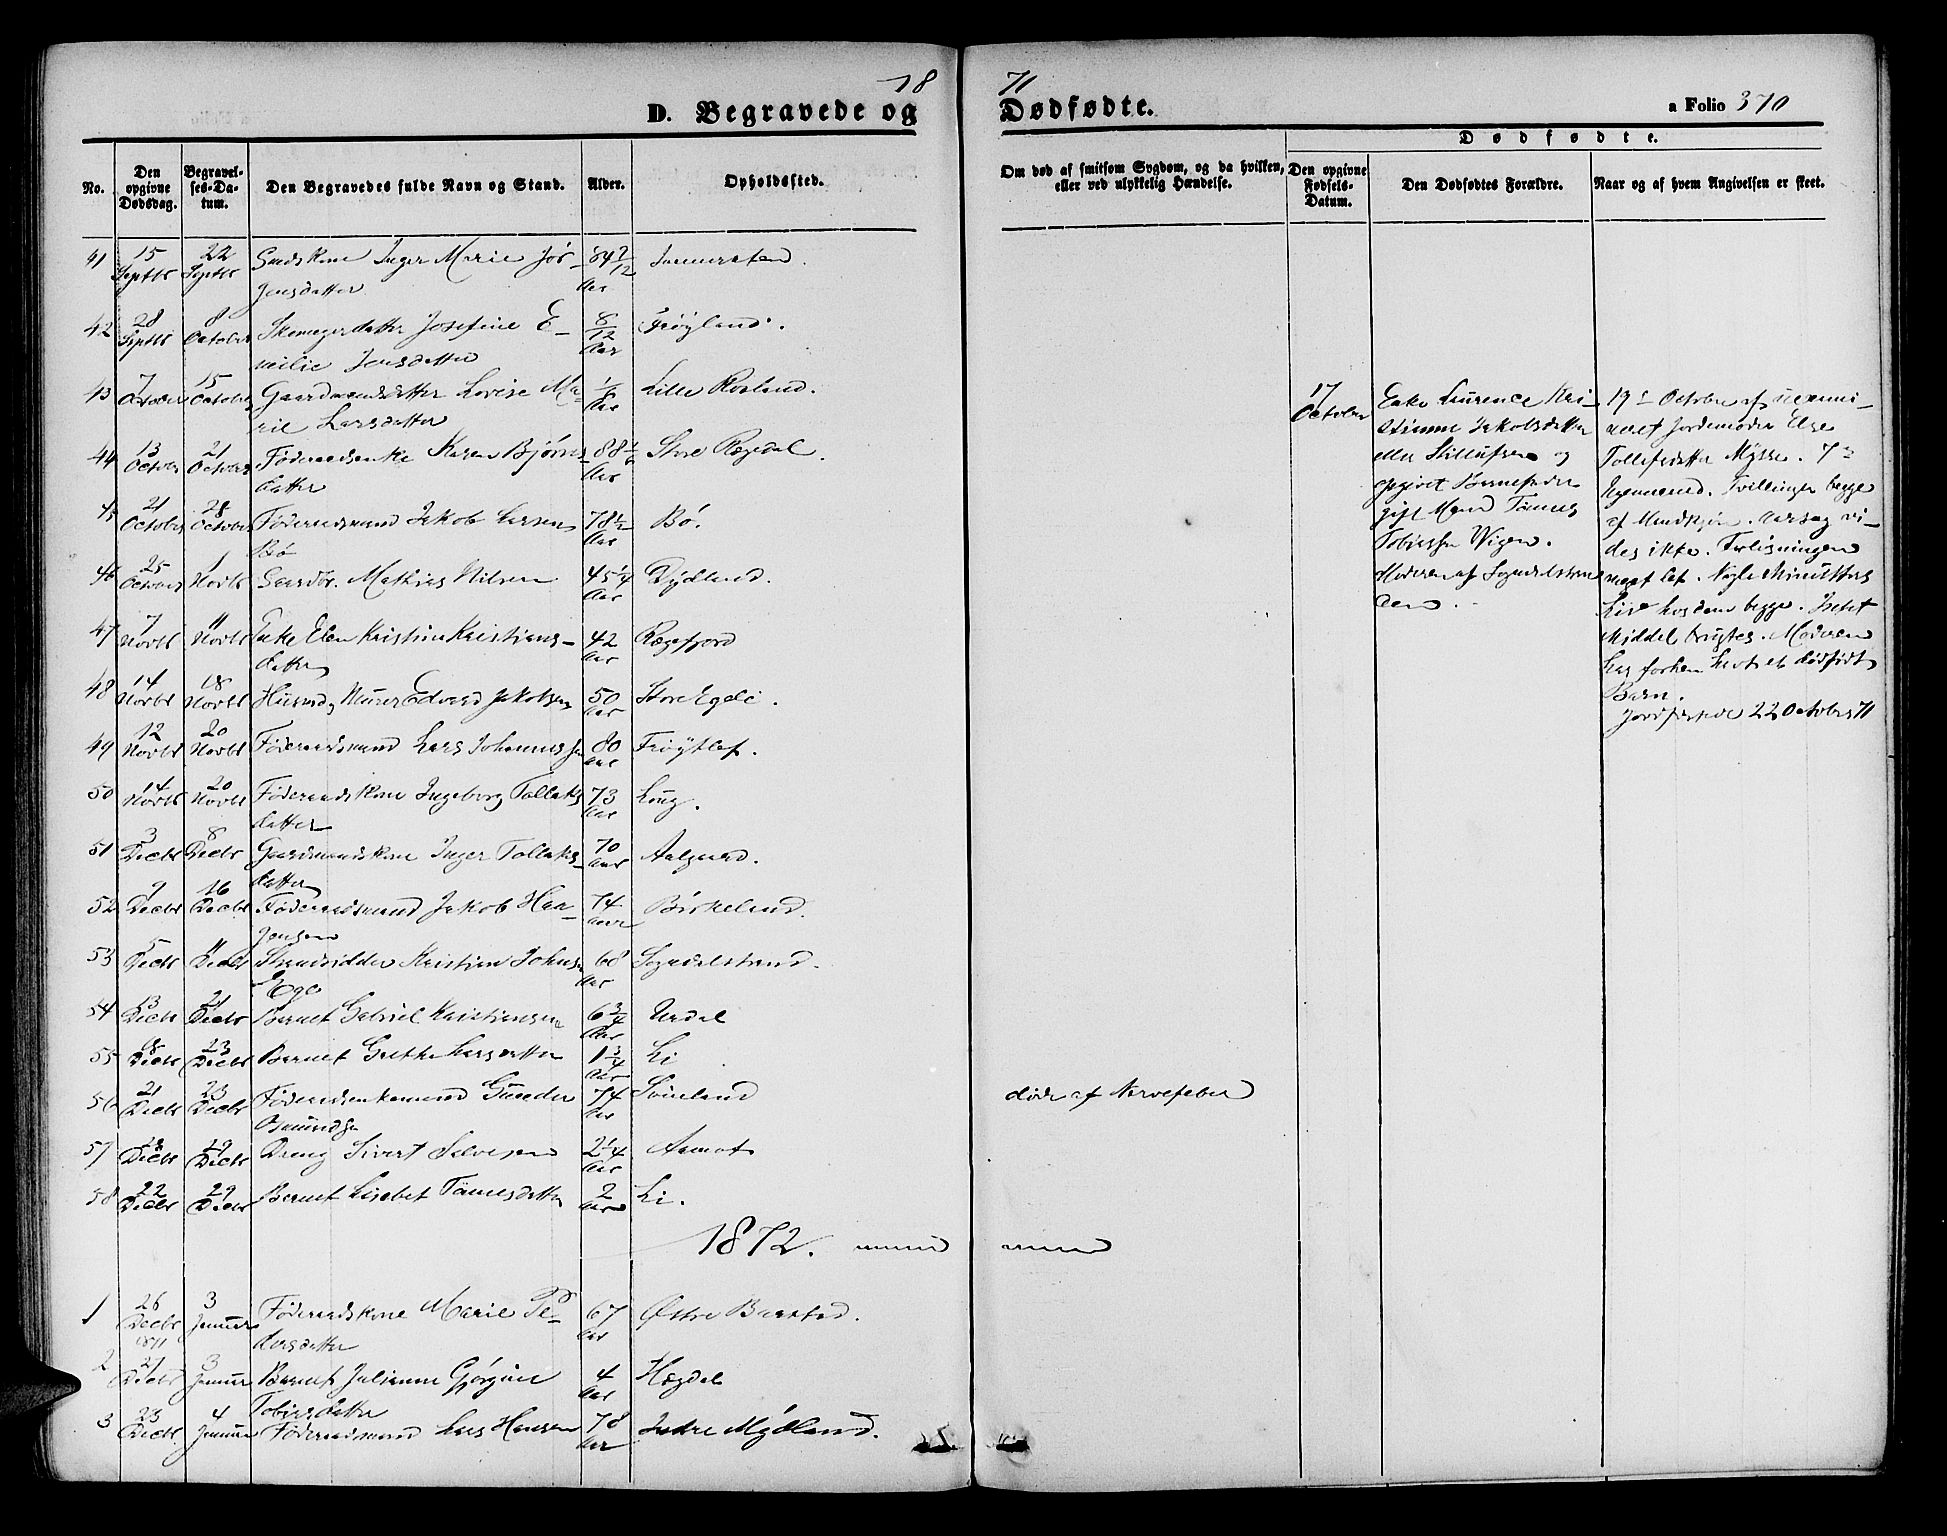 18 71
D. Begravede og Dødfødte.
a Folio 370
Dødfødte.
No.
Den opgivne Dødsdag.
Begravelses-Datum.
Den Begravedes fulde Navn og Stand.
Alder.
Opholdssted.
Om død af smitsom Sygdom, og da hvilken,
eller ved ulykkelig Hændelse.
Den opgivne Fødsels-Datum.
Den Dødfødtes Forældre.
Naar og af hvem Angivelsen er skeet.
41 15 Septbr 22 Septbr Inger Marie Jør-
gensdatter 84 7/12 Aar
42 28 Septbr 8 October Josefine E-
milie Jensdatter 8/12 Aar Frøyland.
43 7 October 15 October Gaardmandsdatter Lovise Ma-
rie Larsdatter 1/8 Aar Lille Rosland.
44 13 Octobr 21 Octobr Føderaadsenke Karen Bjørns-
datter 88 1/2 Aar Store Rægedal.
45 21 October 28 October Føderaadsmand Jakob Larsen
Bø 78 1/2 Aar Bø.
46 25 Octobr 1 Novbr Mathias Nilsen 45 1/4 Aar Dydland.
47 7 Novbr 11 Novbr Enke Elen Kristine Kristians-
datter 42 Aar Rægefjord
48 14 Novbr 18 Novbr Husmd og Murer Edvard Jakobsen 50 Aar Store Egeli.
49 12 Novbr 20 Novbr Føderaadsmand Lars Johannessen 80 Aar Frøytlef.
50 14 Novbr 20 Novbr Føderaadskone Ingeborg Tollaks
datter 73 Aar Loug.
51 3 Decbr 8 Decbr Gaardmandskone Inger Tollaks-
datter 70 Aar Aalgaard.
52 9 Decbr 16 Decbr Føderaadsmand Jakob Han-
sen 74 Aar Birkeland.
53 5 Decbr 11 Decbr Strandsidder Kristian Johnsen
Ege 68 Aar Sogndalstrand.
54 13 Decbr 21 Decbr Barnet Gabriel Kristiansen 6 3/4 Aar Urdal
55 18 Decbr 23 Decbr Barnet Grethe Larsdatter 1 3/4 Aar Li
56 21 Decbr 23 Decbr Føderaadsenkemand Gunder
Omundsen 74 Aar Svineland døde af Nervefeber
57 18 Decbr 29 Decbr Dreng Sivert Salvesen 2 1/4 Aar Aamot
58 22 Decbr 29 Decbr Barnet Lisabet Tønnesdatter 2 Aar Li.
17 October
Enke Laurence Kri-
stinne Jakobsdatter
eller og
opgivet Barnefader
gift Mand Tønnes
Tobiassen Wigen.
Moderen af Sogndalstran-
den.
19de October af uexami-
neret Jordemoder Else
Tollefsdatter Mysse.
Tvillinger begge
af Mandkjøn. Aarsag vi-
des ikke. Forløsningen
næst let. Nogle Minutters
Liv hos dem begge. Intet
Middel brugtes. Moderen
har forhen havt et dødfødt
Barn.
Jordfæstede 22 October 71
1872.
1 26 Decbr 1871 3 Januar Føderaadskone Marie Pe-
dersdatter 67 Aar Østre Barstad.
2 27 Decbr 3 Januar Barnet Juliane Gjørgine
Tobiasdatter 4 Aar Hægdal
3 23 Decbr 4 Januar Føderaadsmand Lars Hansen 78 Aar Indre Mydland.